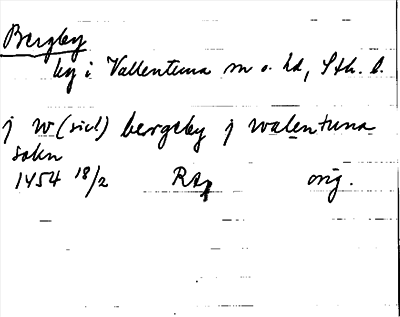 Bergby
by i Vallentuna sn o. hd, Sth. l.
j w (sic!) bergeby j walentuna
sokn
1454 18/2 RAp orig.